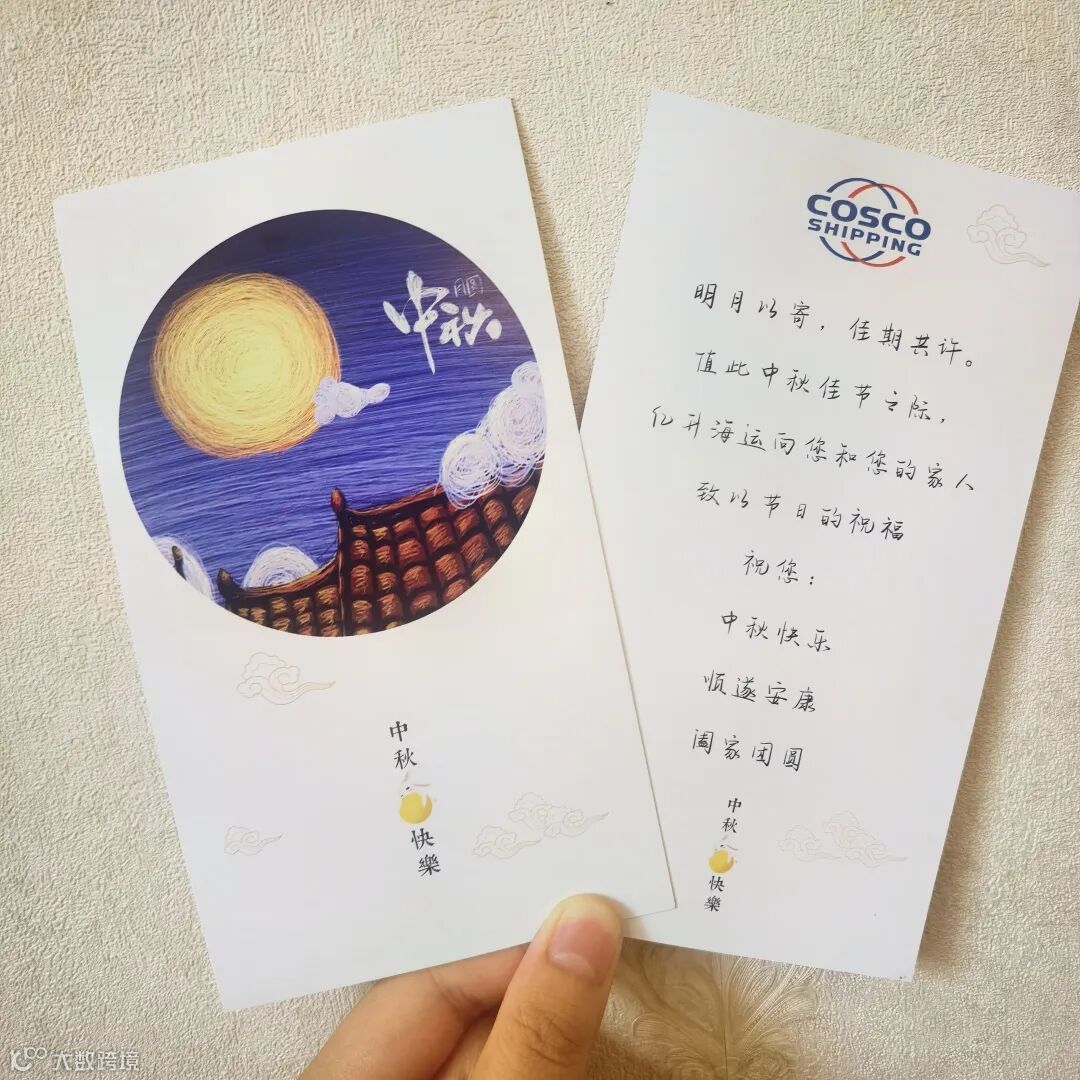 中秋
月圆
中秋
快樂
COSCO
SHIPPING
明月以寄，佳期共许。
值此中秋佳节之际，
亿升海运向您和您的家人
致以节日的祝福
祝您：
中秋快乐
顺遂安康
阖家团圆
中秋
快樂
大数跨境